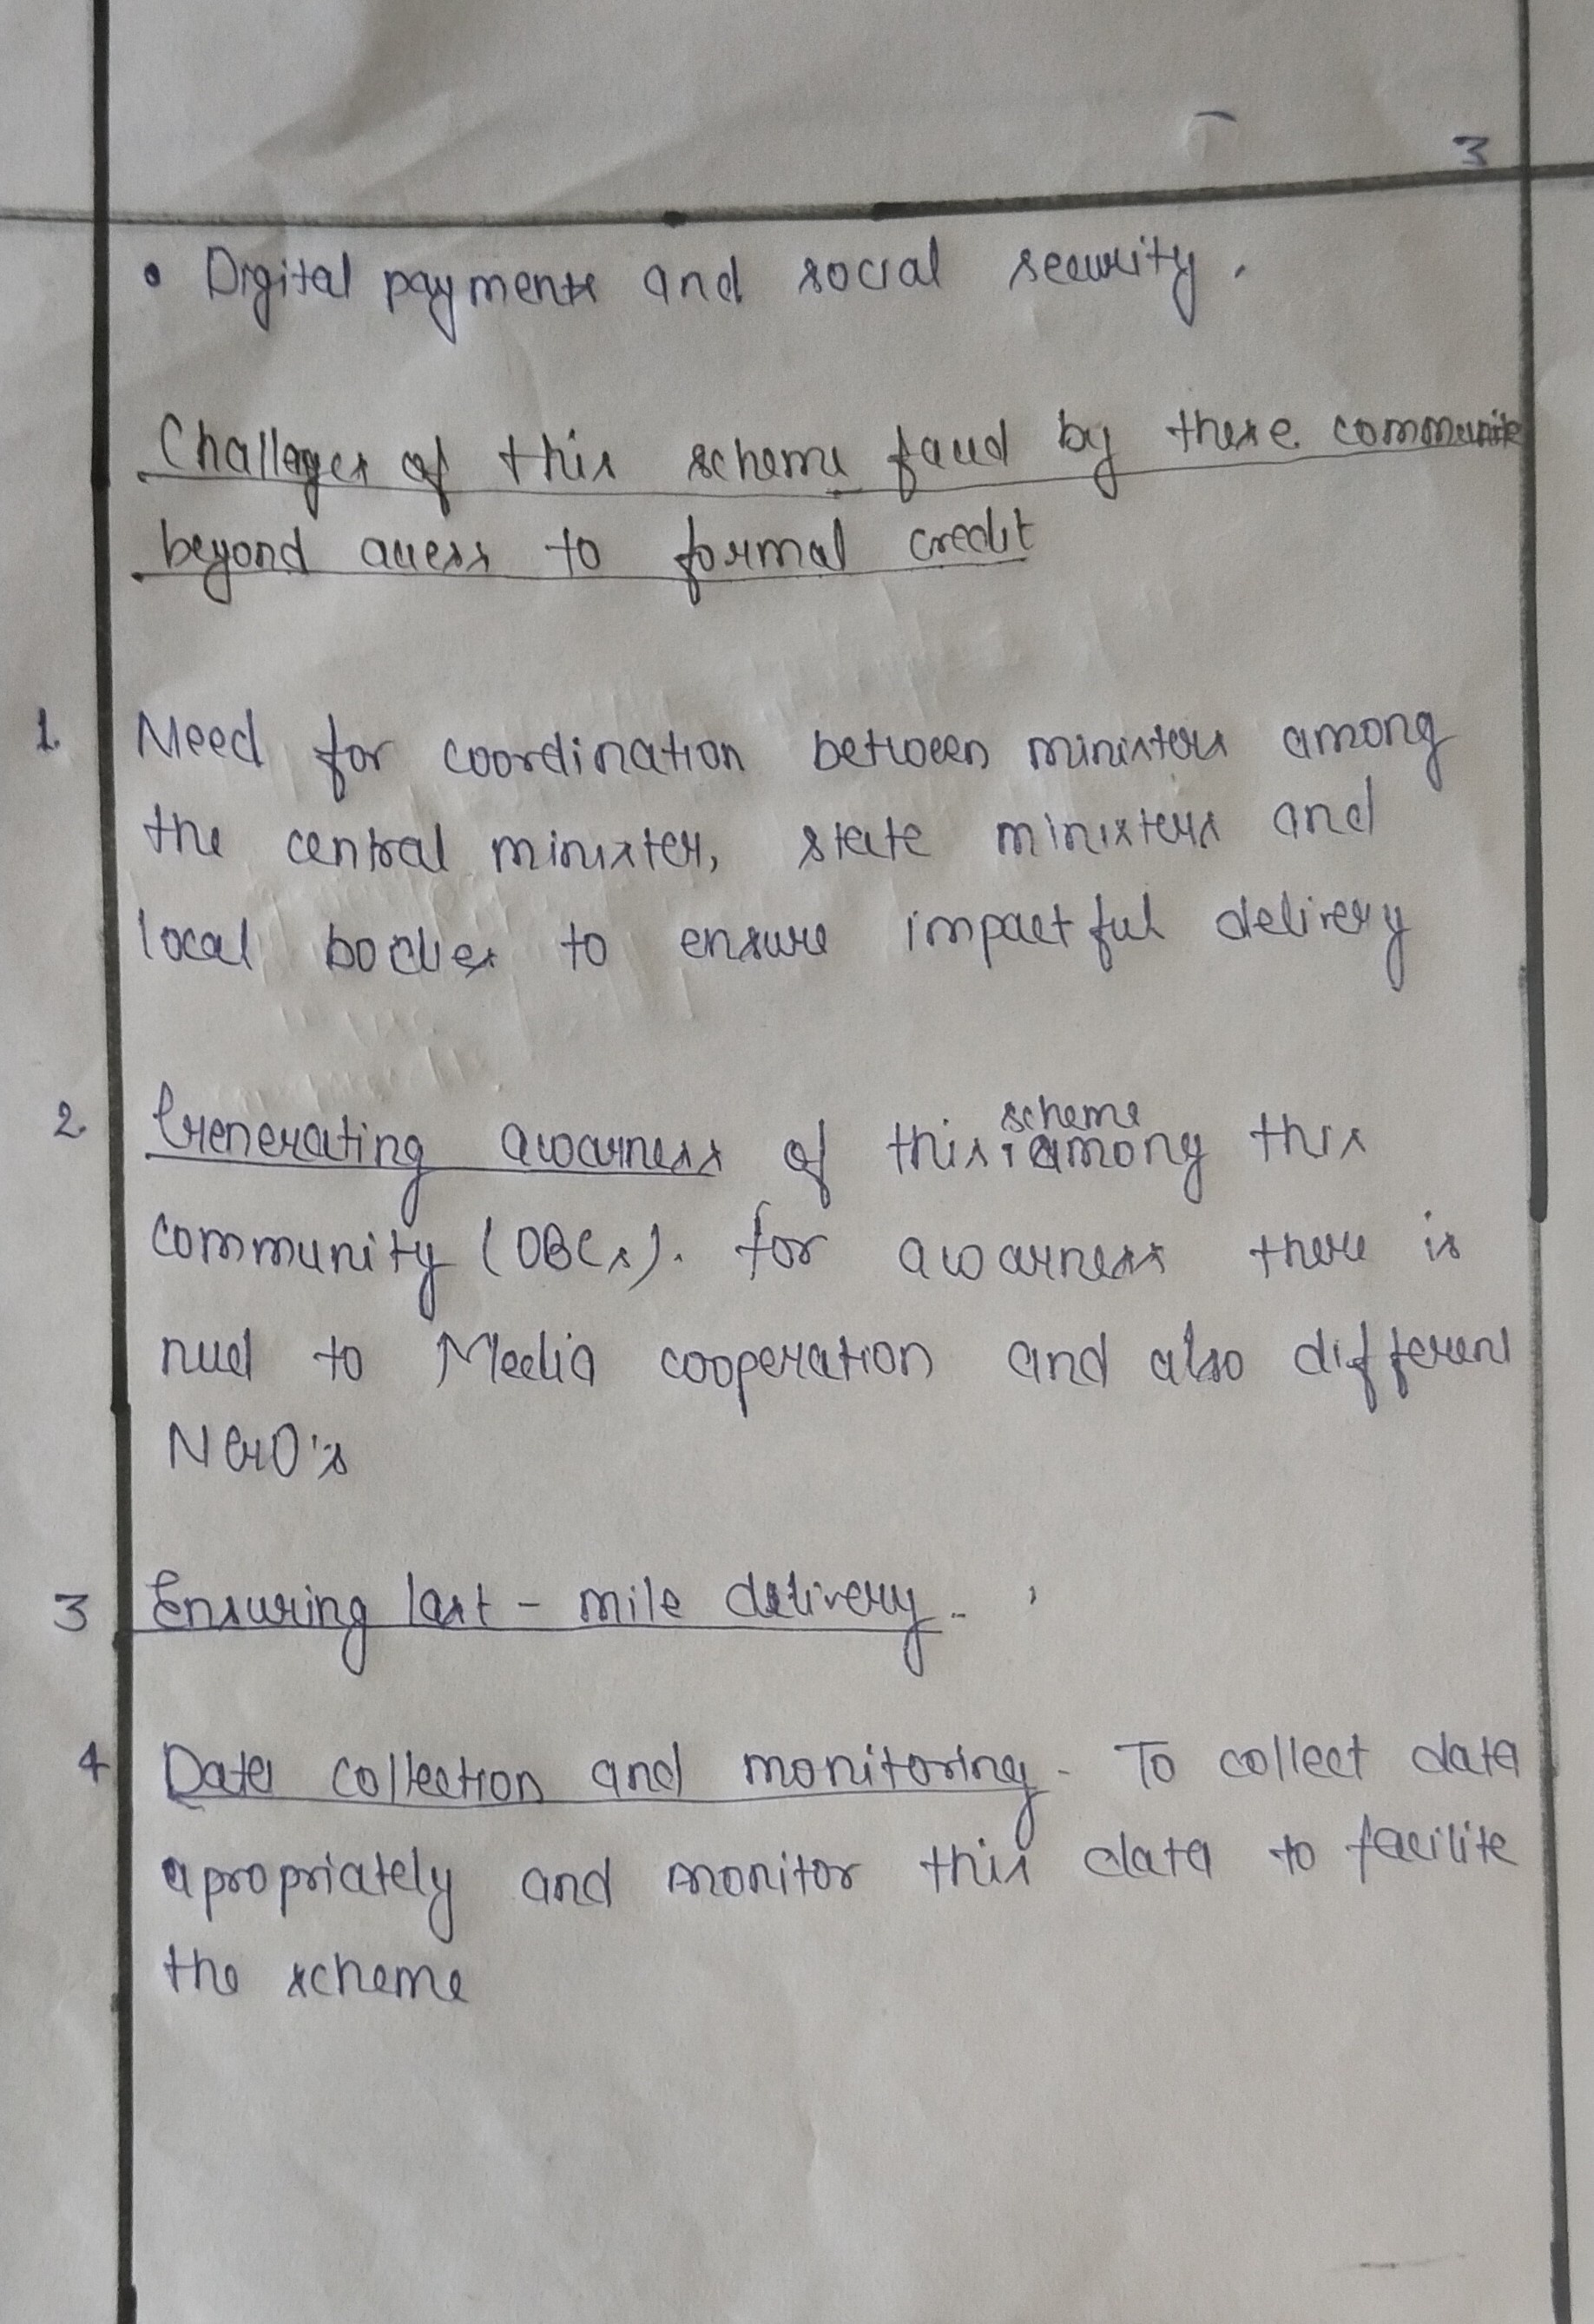 3
• Digital payments and social security.
Challenges of this scheme faced by these communitie
beyond access to formal credit
1. Need for coordination between ministers among
the central minister, state ministers and
local bodies to ensure impactful delivery
2. Generating awarness of this scheme among this
community (OBCs). for awarness there is
need to Media cooperation and also different
NGO's
3 Ensuring last - mile delivery -
4 Data collection and monitoring - To collect data
apropriately and monitor this data to facilite
the scheme